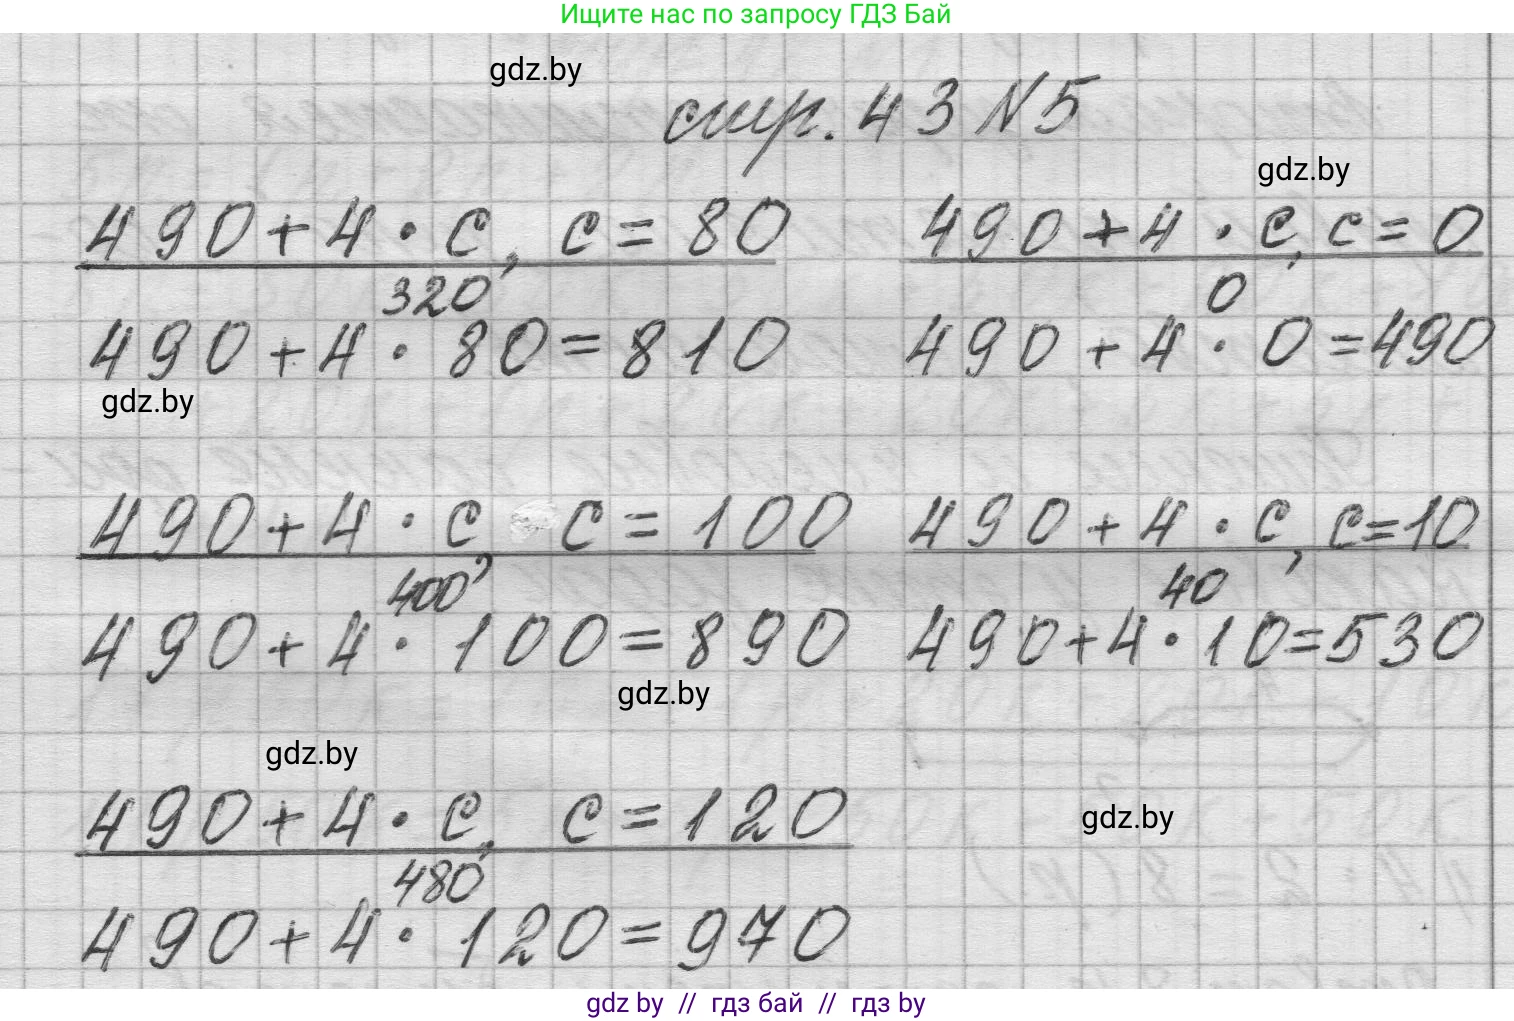 Ищите нас по запросу ГДЗ Бай
gdz.by
стр. 43 N5
gdz.by
490+4·c, c=80
490+4·c, c=0
320
0
490+4·80=810
490+4·0=490
gdz.by
490+4·c, c=100
490+4·c, c=10
400
40
490+4·100=890
490+4·10=530
gdz.by
gdz.by
490+4·c, c=120
gdz.by
480
490+4·120=970
gdz by // гдз бай // гдз by